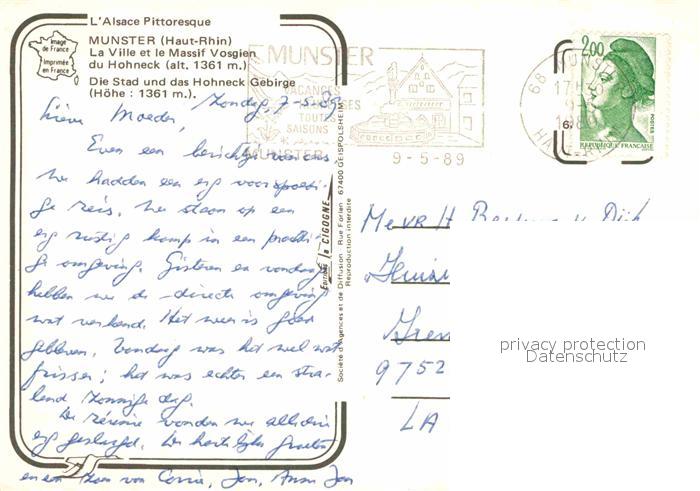 L'Alsace Pittoresque
Image
de France
Imprimée
en France
MUNSTER (Haut-Rhin)
La Ville et le Massif Vosgien
du Hohneck (alt. 1361 m.)
Die Stad und das Hohneck Gebirge
(Höhe : 1361 m.).
MUNSTER
VACANCES
TOUTES
SAISONS
MUNSTER
9-5-89
68 MUNSTER
17H
9-5
1989
HAUT-RHIN
2,00
POSTES
REPUBLIQUE FRANCAISE
Zondag, 7-5-'89
Lieve Moeder,
Even een berichtje van ons
We hadden een erg voorspoedi-
ge reis. We staan op een
erg rustig kamp in een prachti-
ge omgeving. Gisteren en vandaag
hebben we de directe omgeving
wat verkend. Het weer is goed
gebleven. Vandaag was het wel wat
frisser; het was echter een stra-
lend zonnige dag.
De reünie vonden we allebei
erg geslaagd. De hartelijke groeten
en een zoen van Corrie, Jan, Anne Jan
Editions la CIGOGNE
Société d'Agences et de Diffusion. Rue Forlen 67400 GEISPOLSHEIM
Reproduction interdite
Mevr H
v. Dijk
9752
LA
privacy protection
Datenschutz